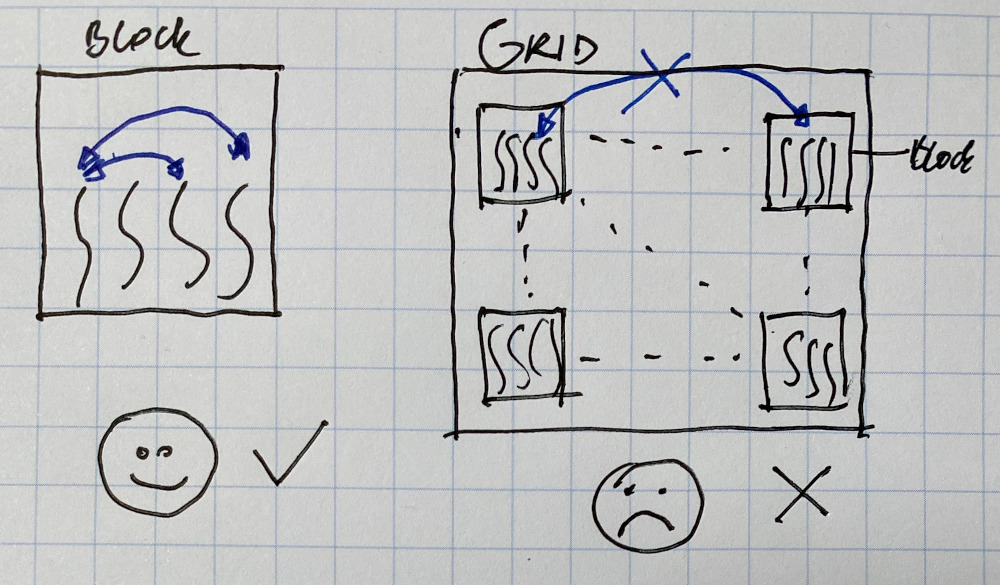 Block
GRID
block